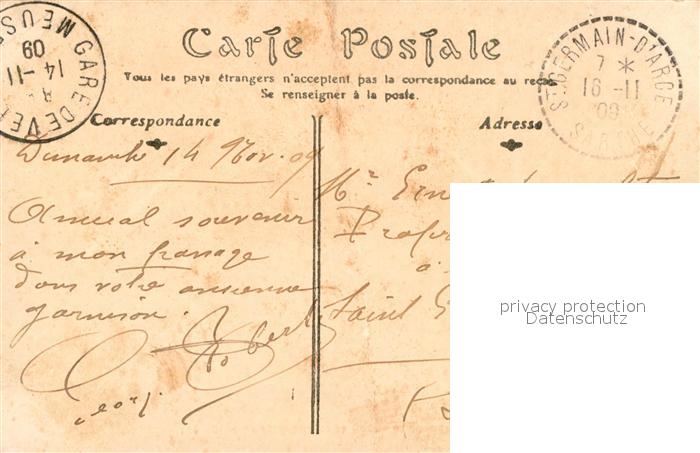 Carte Postale
Tous les pays étrangers n'acceptent pas la correspondance au recto
Se renseigner à la poste.
Correspondance
Dimanche 14 Nov. 09
Amical souvenir
à mon passage
dans votre ancienne
garnison.
Robert
Adresse
Mr Ern
Propr
à
Saint
GARE DE VE
MEUSE
14-11
09
ST GERMAIN-D'ARCE
7 *
16-11
09
SARTHE
privacy protection
Datenschutz